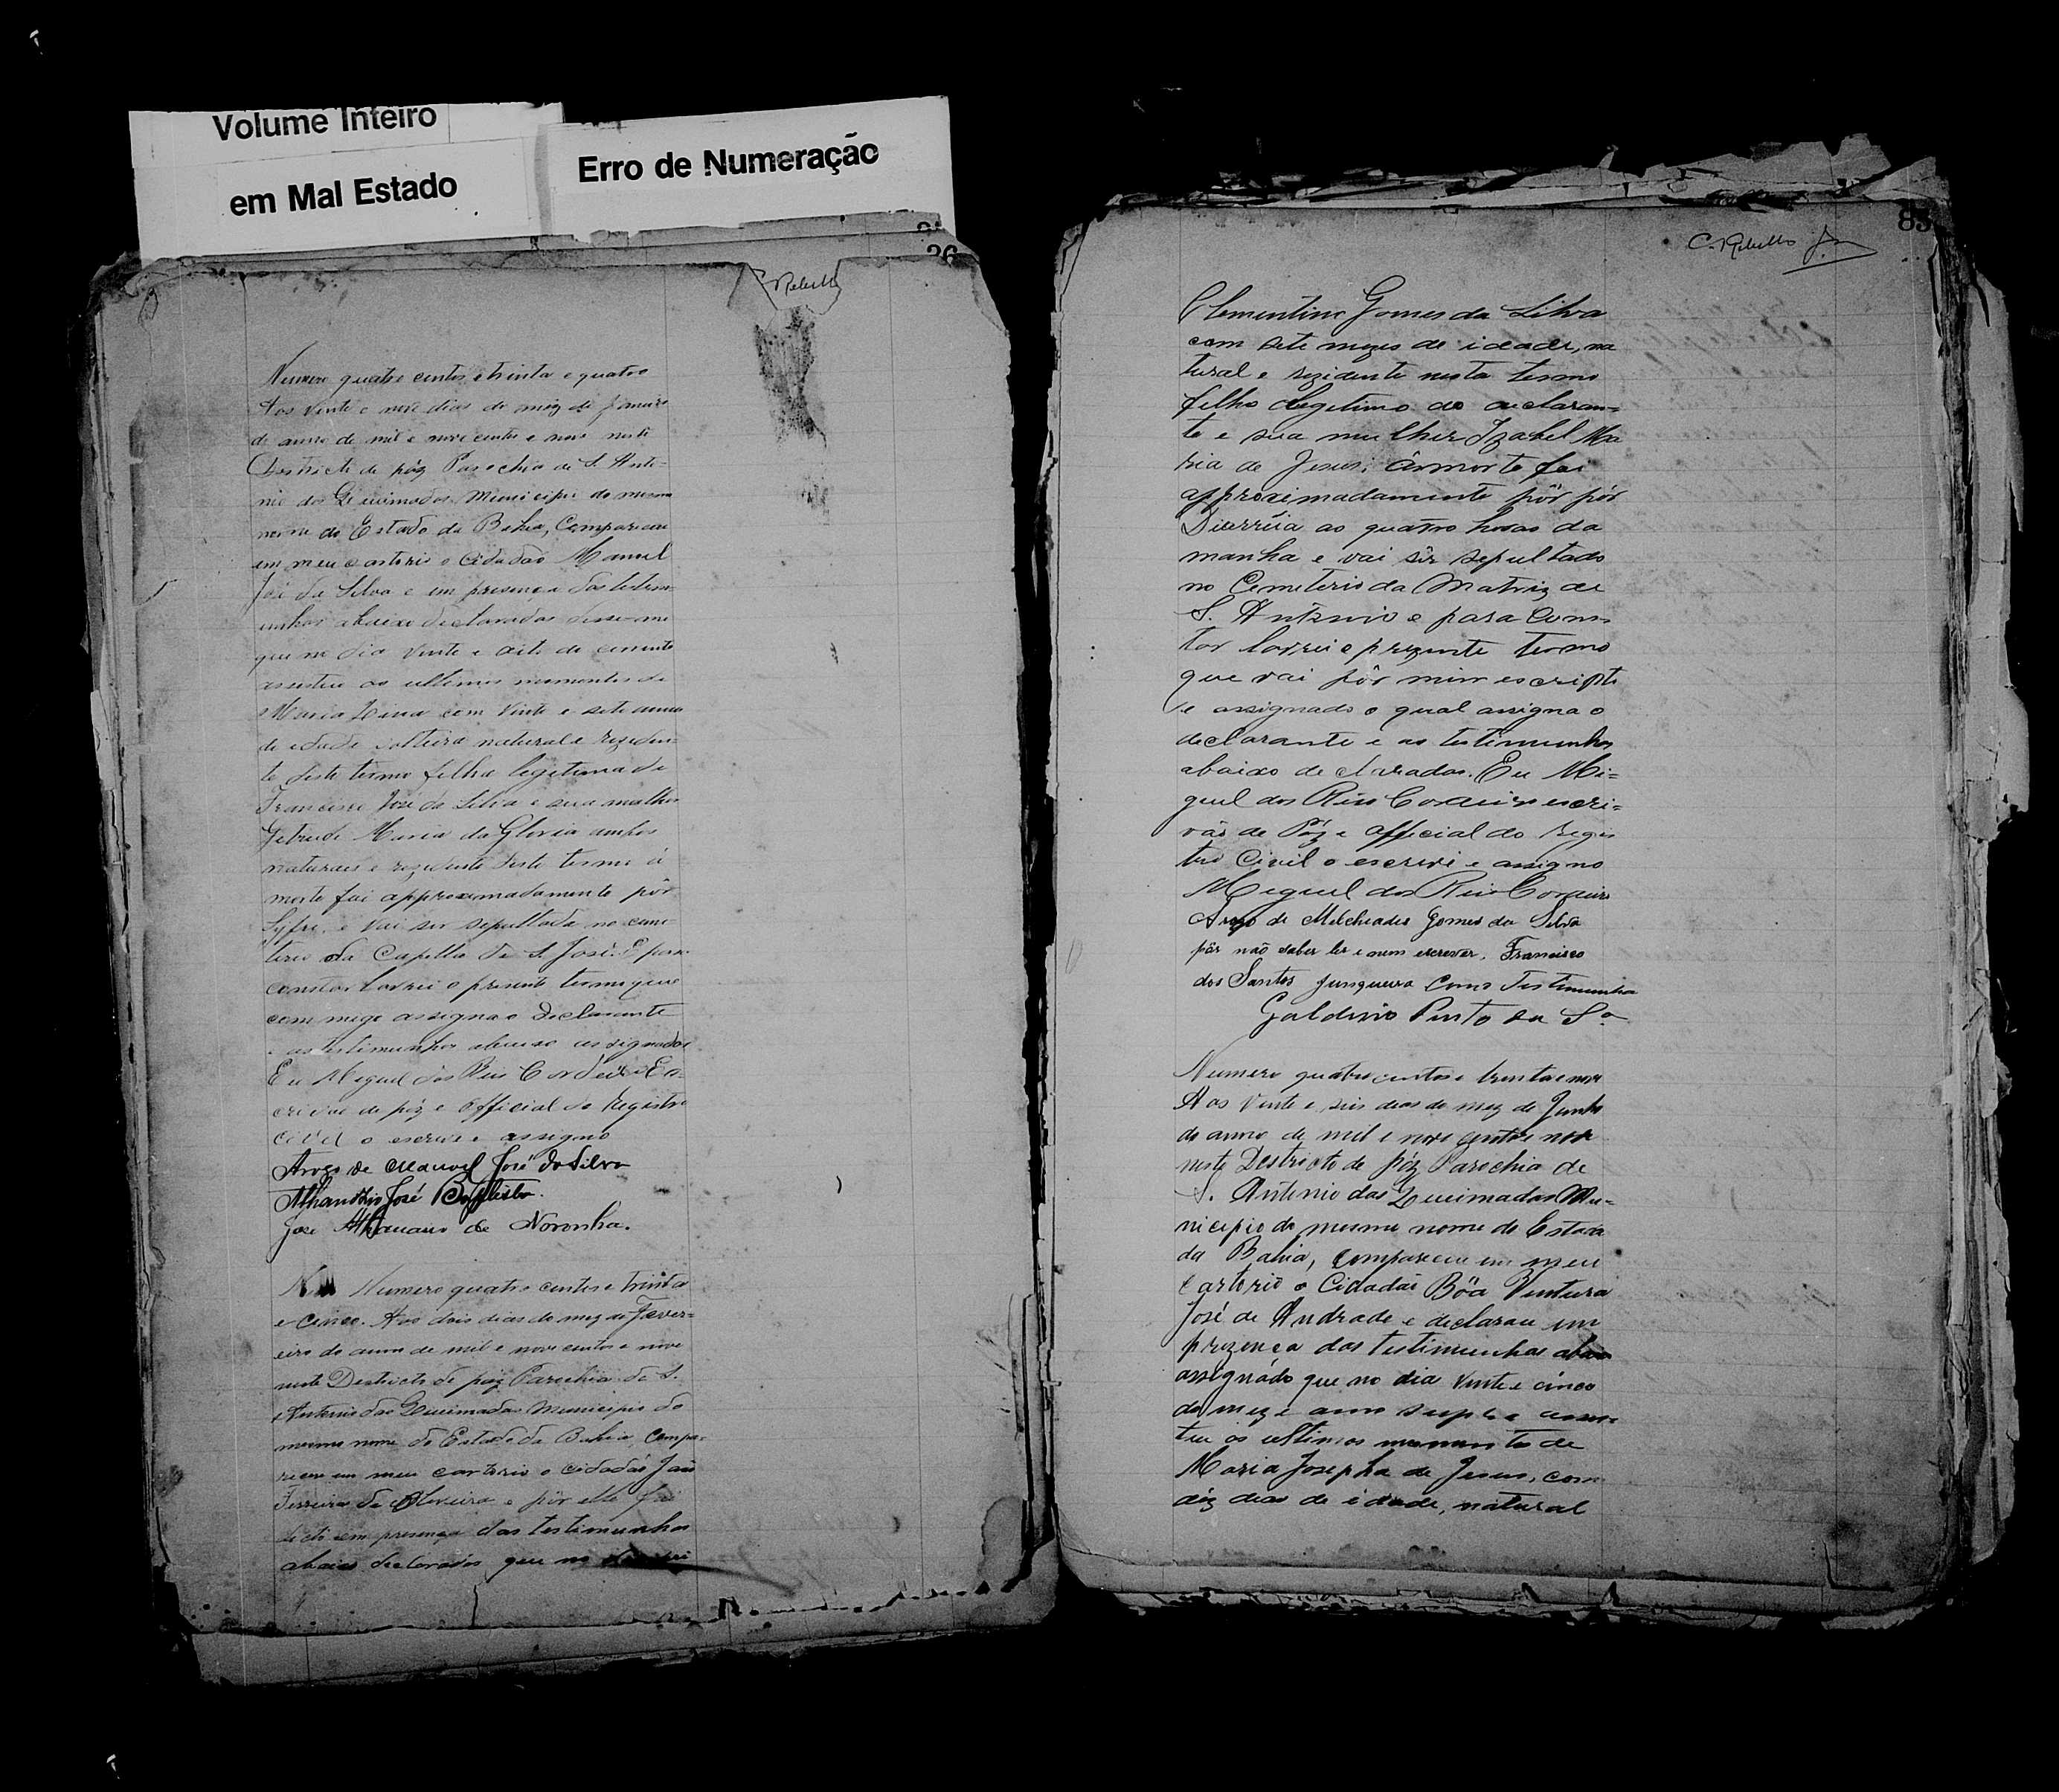 Volume Inteiro
em Mal Estado
Erro de Numeração
26
C. Rebello
Numero quatro centos e trinta e quatro
Aos vinte e nove dias do mez de Janeiro
do anno de mil e nove centos e nove neste
Districto de páz Parochia de S. Anto-
nio das Queimadas Municipio do mesmo
nome do Estado da Bahia, Compareceu
em meu cartorio o Cidadão Manuel
José da Silva e em presença das testem-
unhas abaixo declaradas disse-me
que no dia vinte e oito do corrente
assistiu os ultimos momentos de
Maria com vinte e sete annos
de edade solteira natural e reziden-
te deste termo filha legitima de
Francisco José da Silva e sua mulher
Getrudi Maria da Gloria ambos
naturaes e rezidente deste termo a
morte foi approximadamente pôr
e vai ser sepultada no cemi-
terio da Capella de S. José. E para
constar lavrei o presente termo que
com migo assigna o Declarante
e as testimunhas abaixo assignados
Eu Miguel dos Reis Cordeiro Es-
crivão de páz e Official do Registro
Civil o escrevi e assigno
Arogo de Manoel José da Silva
Athanazio José Baptista.
José Athanazio de Noronha.
Numero quatro centos e trinta
e cinco. Aos dois dias do mez de Fever-
eiro do anno de mil e nove centos e nove
neste Destricto de páz Parochia de S.
Antonio das Queimadas Municipio do
mesmo nome do Estado da Bahia, Compa-
receu em meu cartorio o cidadão João
Ferreira de Oliveira e pôr elle foi
dicto em presença das testimunhas
abaixo declarados que no
85
C. Rebello Jr
Clementino Gomes da Silva
com sete mezes de idade, na
tural e rezidente neste termo
filho legitimo do declaran=
te e sua mulher Izabel Ma
ria de Jesus; a morte foi
approximadamente pôr pôr
Diarrúia as quatro horas da
manha e vai sêr sepultado
no Cemeterio da Matriz de
S. Antonio e para Cons
tar lavrei o prezente termo
que vai pôr mim escripto
e assignado o qual assigna o
declarante e as testimunhas
abaixo declaradas. Eu Mi=
guel dos Reis Cordeiro escri=
vão de Páz e official do Regis
tro Civil o escrevi e assigno
Miguel dos Reis Cordeiro
Arogo de Melchiades Gomes da Silva
pôr não saber ler e nem escrever. Francisco
dos Santos Junqueira Como Testimunha
Galdino Pinto da Sª
Numero quatro centos e trinta e nove
Aos vinte e seis dias do mez de Junho
do anno de mil e nove centos e nove
neste Destricto de páz Parochia de
S. Antonio das Queimadas Mu=
nicipio do mesmo nome do Estado
da Bahia, compareceu em meu
Cartorio o Cidadão Bôa Ventura
José de Andrade e declarou em
prezença das testimunhas abaixo
assignádo que no dia vinte e cinco
do mez e anno supra assis-
tiu os ultimos momentos de
Maria Josepha de Jesus, com
déz dias de idade, natural